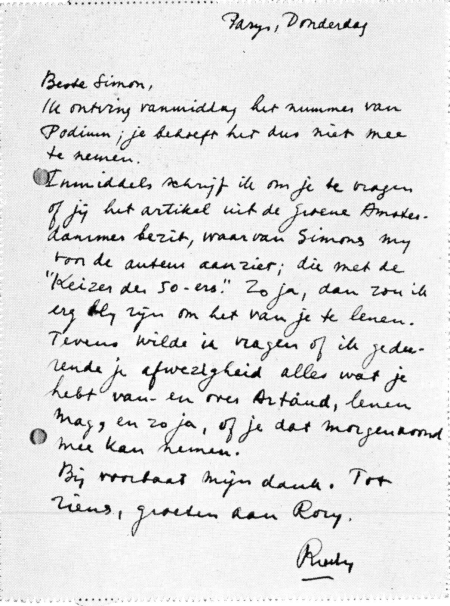 Parys, Donderdag
Beste Simon,
Ik ontving vanmiddag het nummer van
Podium; je behoeft het dus niet mee
te nemen.
Inmiddels schrijf ik om je te vragen
of jij het artikel uit de Groene Amster-
dammer bezit, waarvan Simons my
voor de auteur aanziet; die met de
"Keizer der 50-ers." Zo ja, dan zou ik
erg bly zijn om het van je te lenen.
Tevens wilde ik vragen of ik gedu-
rende je afwezigheid alles wat je
hebt van- en over Artaud, lenen
mag, en zo ja, of je dat morgenavond
mee kan nemen.
Bij voorbaat mijn dank. Tot
ziens, groeten aan Rory.
Rudy